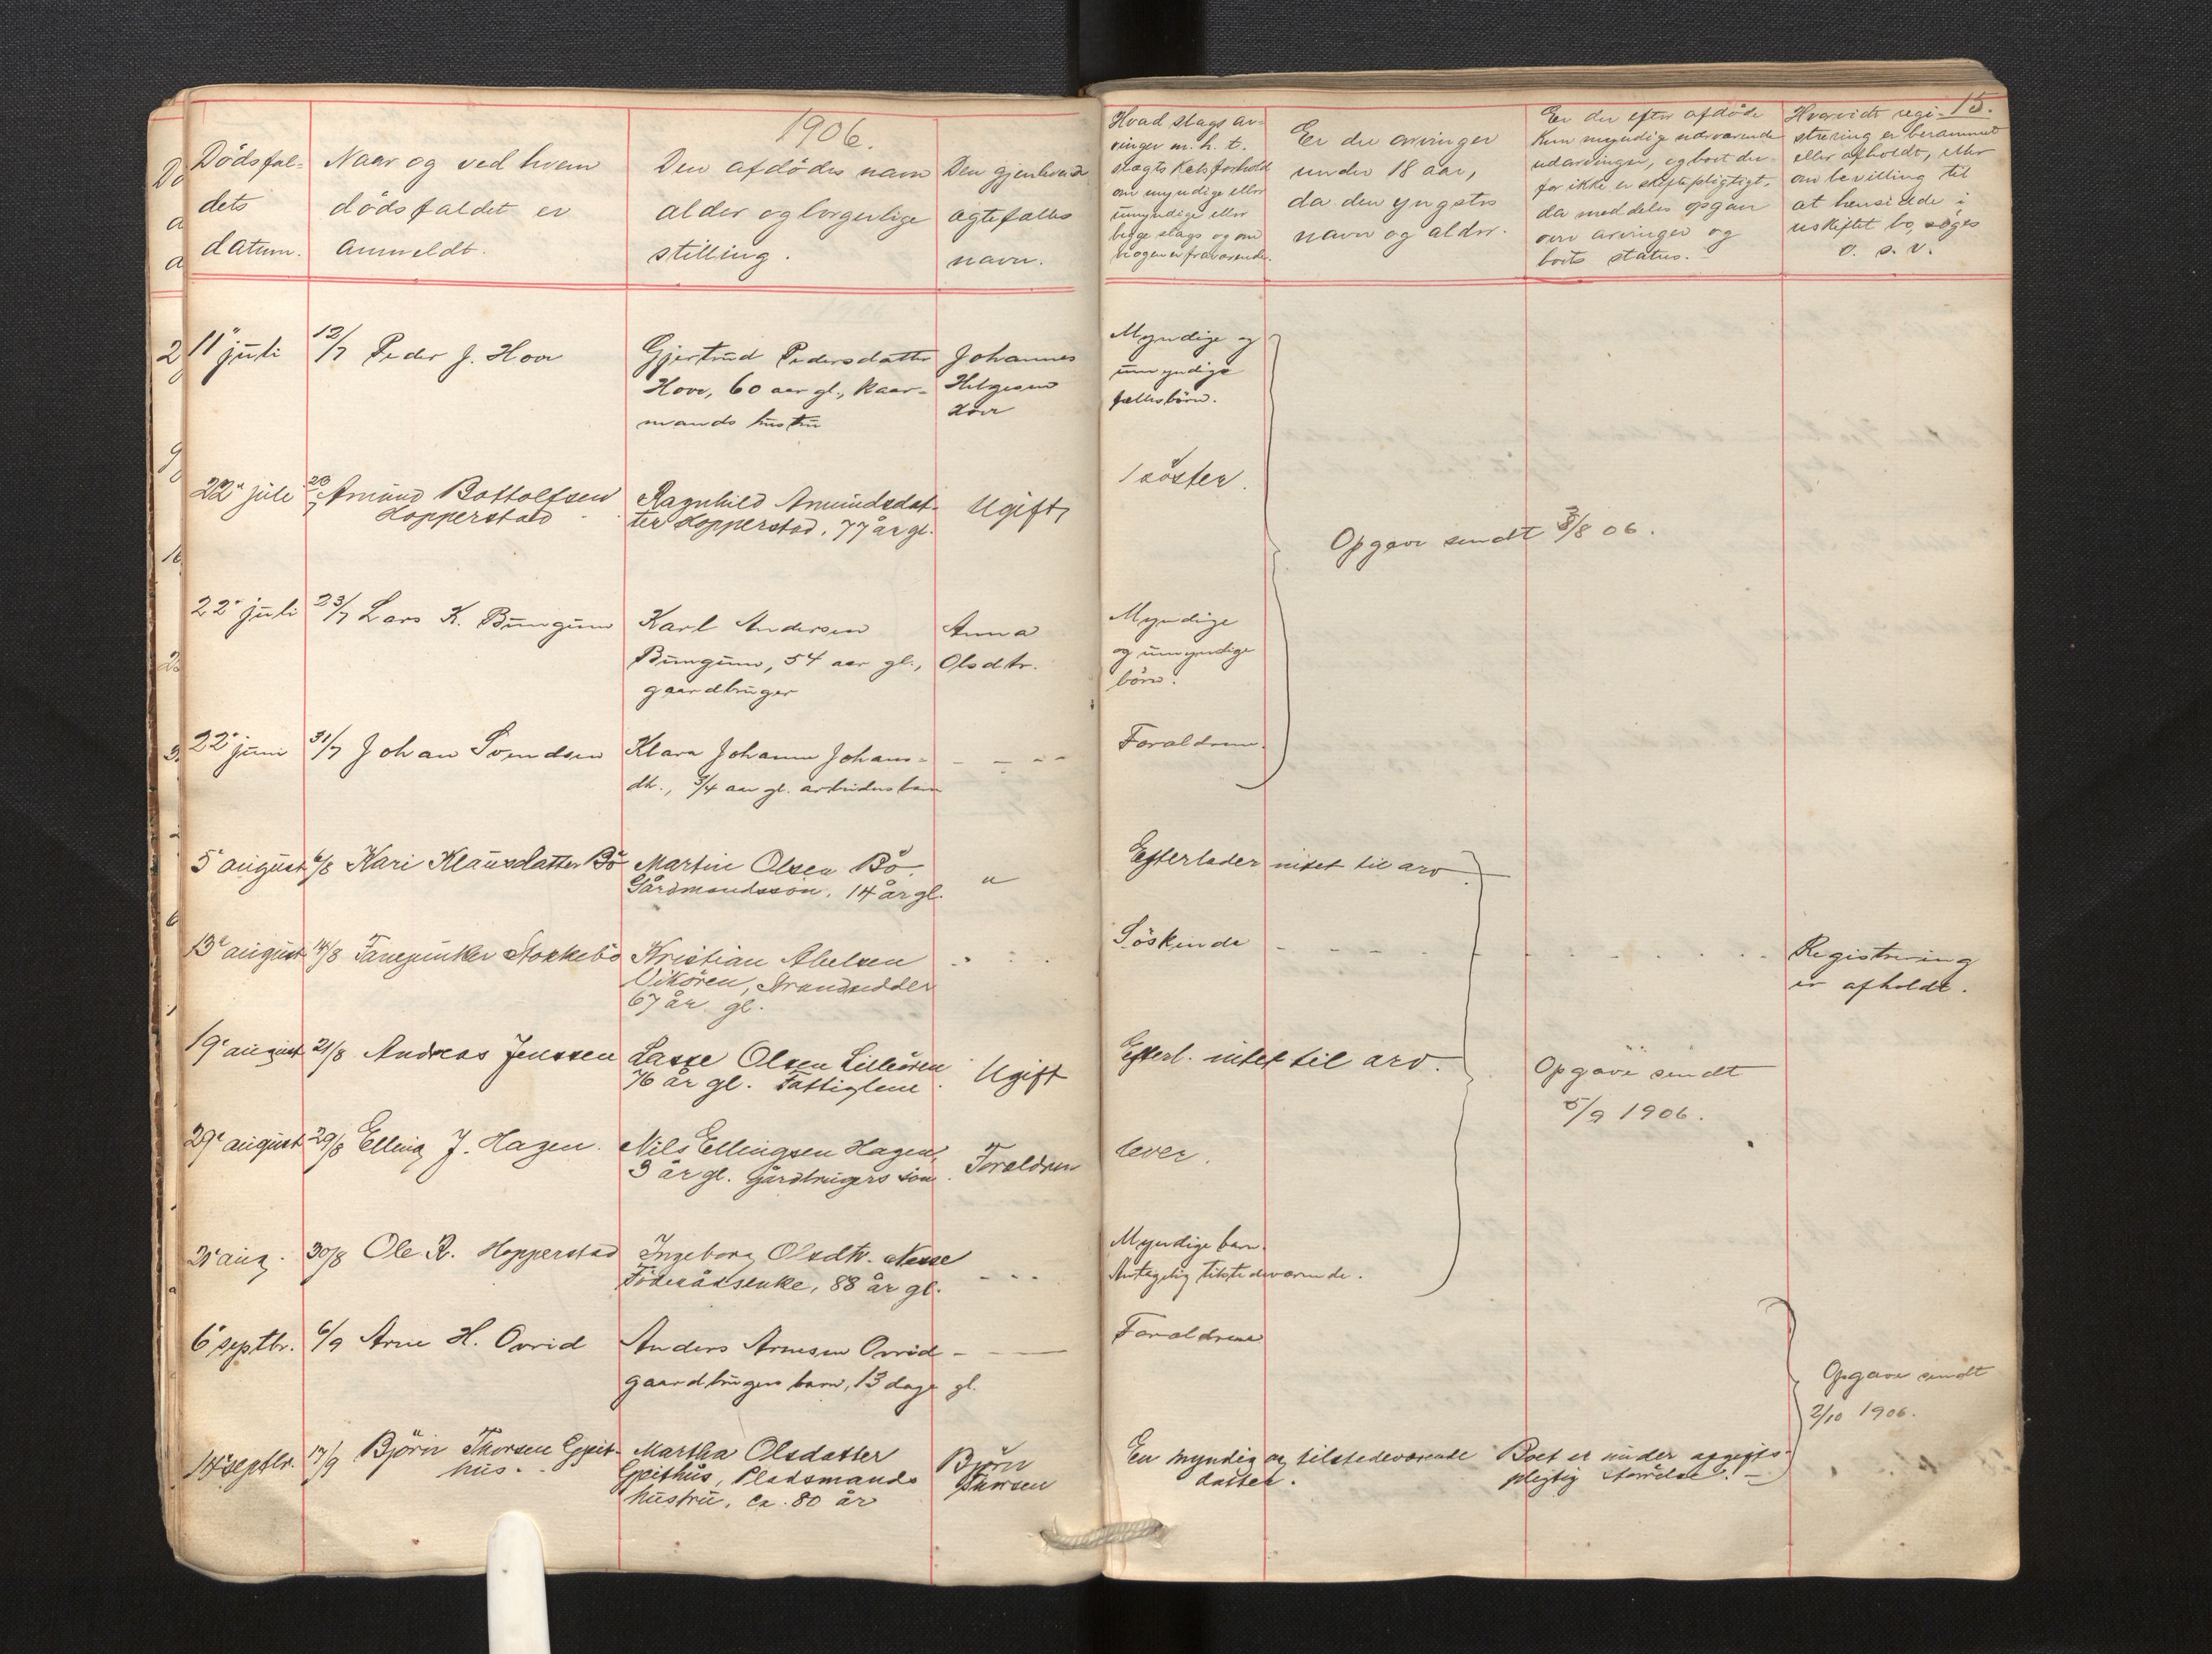 1906.
15.
Dödsfal-
dets
datum.
Naar og ved hvem
dödsfaldet er
anmeldt.
Den afdödes navn
alder og borgerlige
stilling.
Den gjenlevende
ægtefælles
navn.
Hvad slags ar-
vinger m. h. t.
slægtskabsforhold
om myndige eller
umyndige eller
begge slags og om
nogen er fraværende.
Er der arvinger
under 18 aar,
da den yngstes
navn og alder.
Er der efter afdöde
kun myndig nærværende
udarvinger, og boet der-
for ikke er skiftepligtigt,
da meddeles opgave
over arvinger og
boets status.
Hvorvidt regi-
strering er berammet
eller afholdt, eller
om bevilling til
at hensidde i
uskiftet bo, söges
o. s. v.
11 juli
12/7 Peder J. Hove
Gjertrud Pedersdatter
Hove, 60 aar gl., kaar-
mands hustru
Johannes
Helgesen
Hove
Myndige og
umyndige
fællesbörn.
22 juli
23/7 Amund Bottolfsen
Hopperstad
Ragnhild Amundsdat-
ter Hopperstad, 77 år gl.
Ugift
1 söster.
Opgave sendt 3/8 06.
22 juli
23/7 Lars K. Bungum
Karl Andersen
Bungum, 54 aar gl.,
gaardbruger
Anna
Olsdtr.
Myndige
og umyndige
börn.
22 juni
31/7 Johan Svendsen
Klara Johanne Johans-
dtr., 3/4 aar gl. arbeidersbarn
- - - -
Forældrene.
5 august
6/8 Kari Klausdatter Bö
Martin Olsen Bö.
Gårdmandssön, 14 år gl.
"
Efterlader intet til arv.
13 august
14/8 Tanejunker Stokkebö
Kristian Abelsen
Vikören, Strandsidder
67 år gl.
Söskende
Registrering
er afholdt.
19 august
21/8 Andreas Jenssen
Lasse Olsen Lilleören
76 år gl. Fattiglem
Ugift
Efterl. intet til arv.
Opgave sendt
5/9 1906.
29 august
29/8 Elling J. Hagen.
Nils Ellingsen Hagen,
3 år gl. Gårdbrugers sön.
Forældren
lever.
aug.
30/8 Ole R. Hopperstad
Ingeborg Olsdtr. Nesse
Föderådsenke, 88 år gl.
- - -
Myndige barn.
Antagelig tilstedeværende.
6 septbr.
6/9 Arne H. Ovrid
Anders Arnesen Ovrid
gaardbrugers barn, 13 dage gl.
Forældrene
Opgave sendt
2/10 1906.
14 septbr.
17/9 Björn Thorsen Grpit-
hus.
Martha Olsdatter
Gpithus, Pladsmands
hustru, ca. 80 år
Björn
Thorsen
En myndig og tilstedeværende
datter.
Boet er under afgifts-
pligtig størrelse.